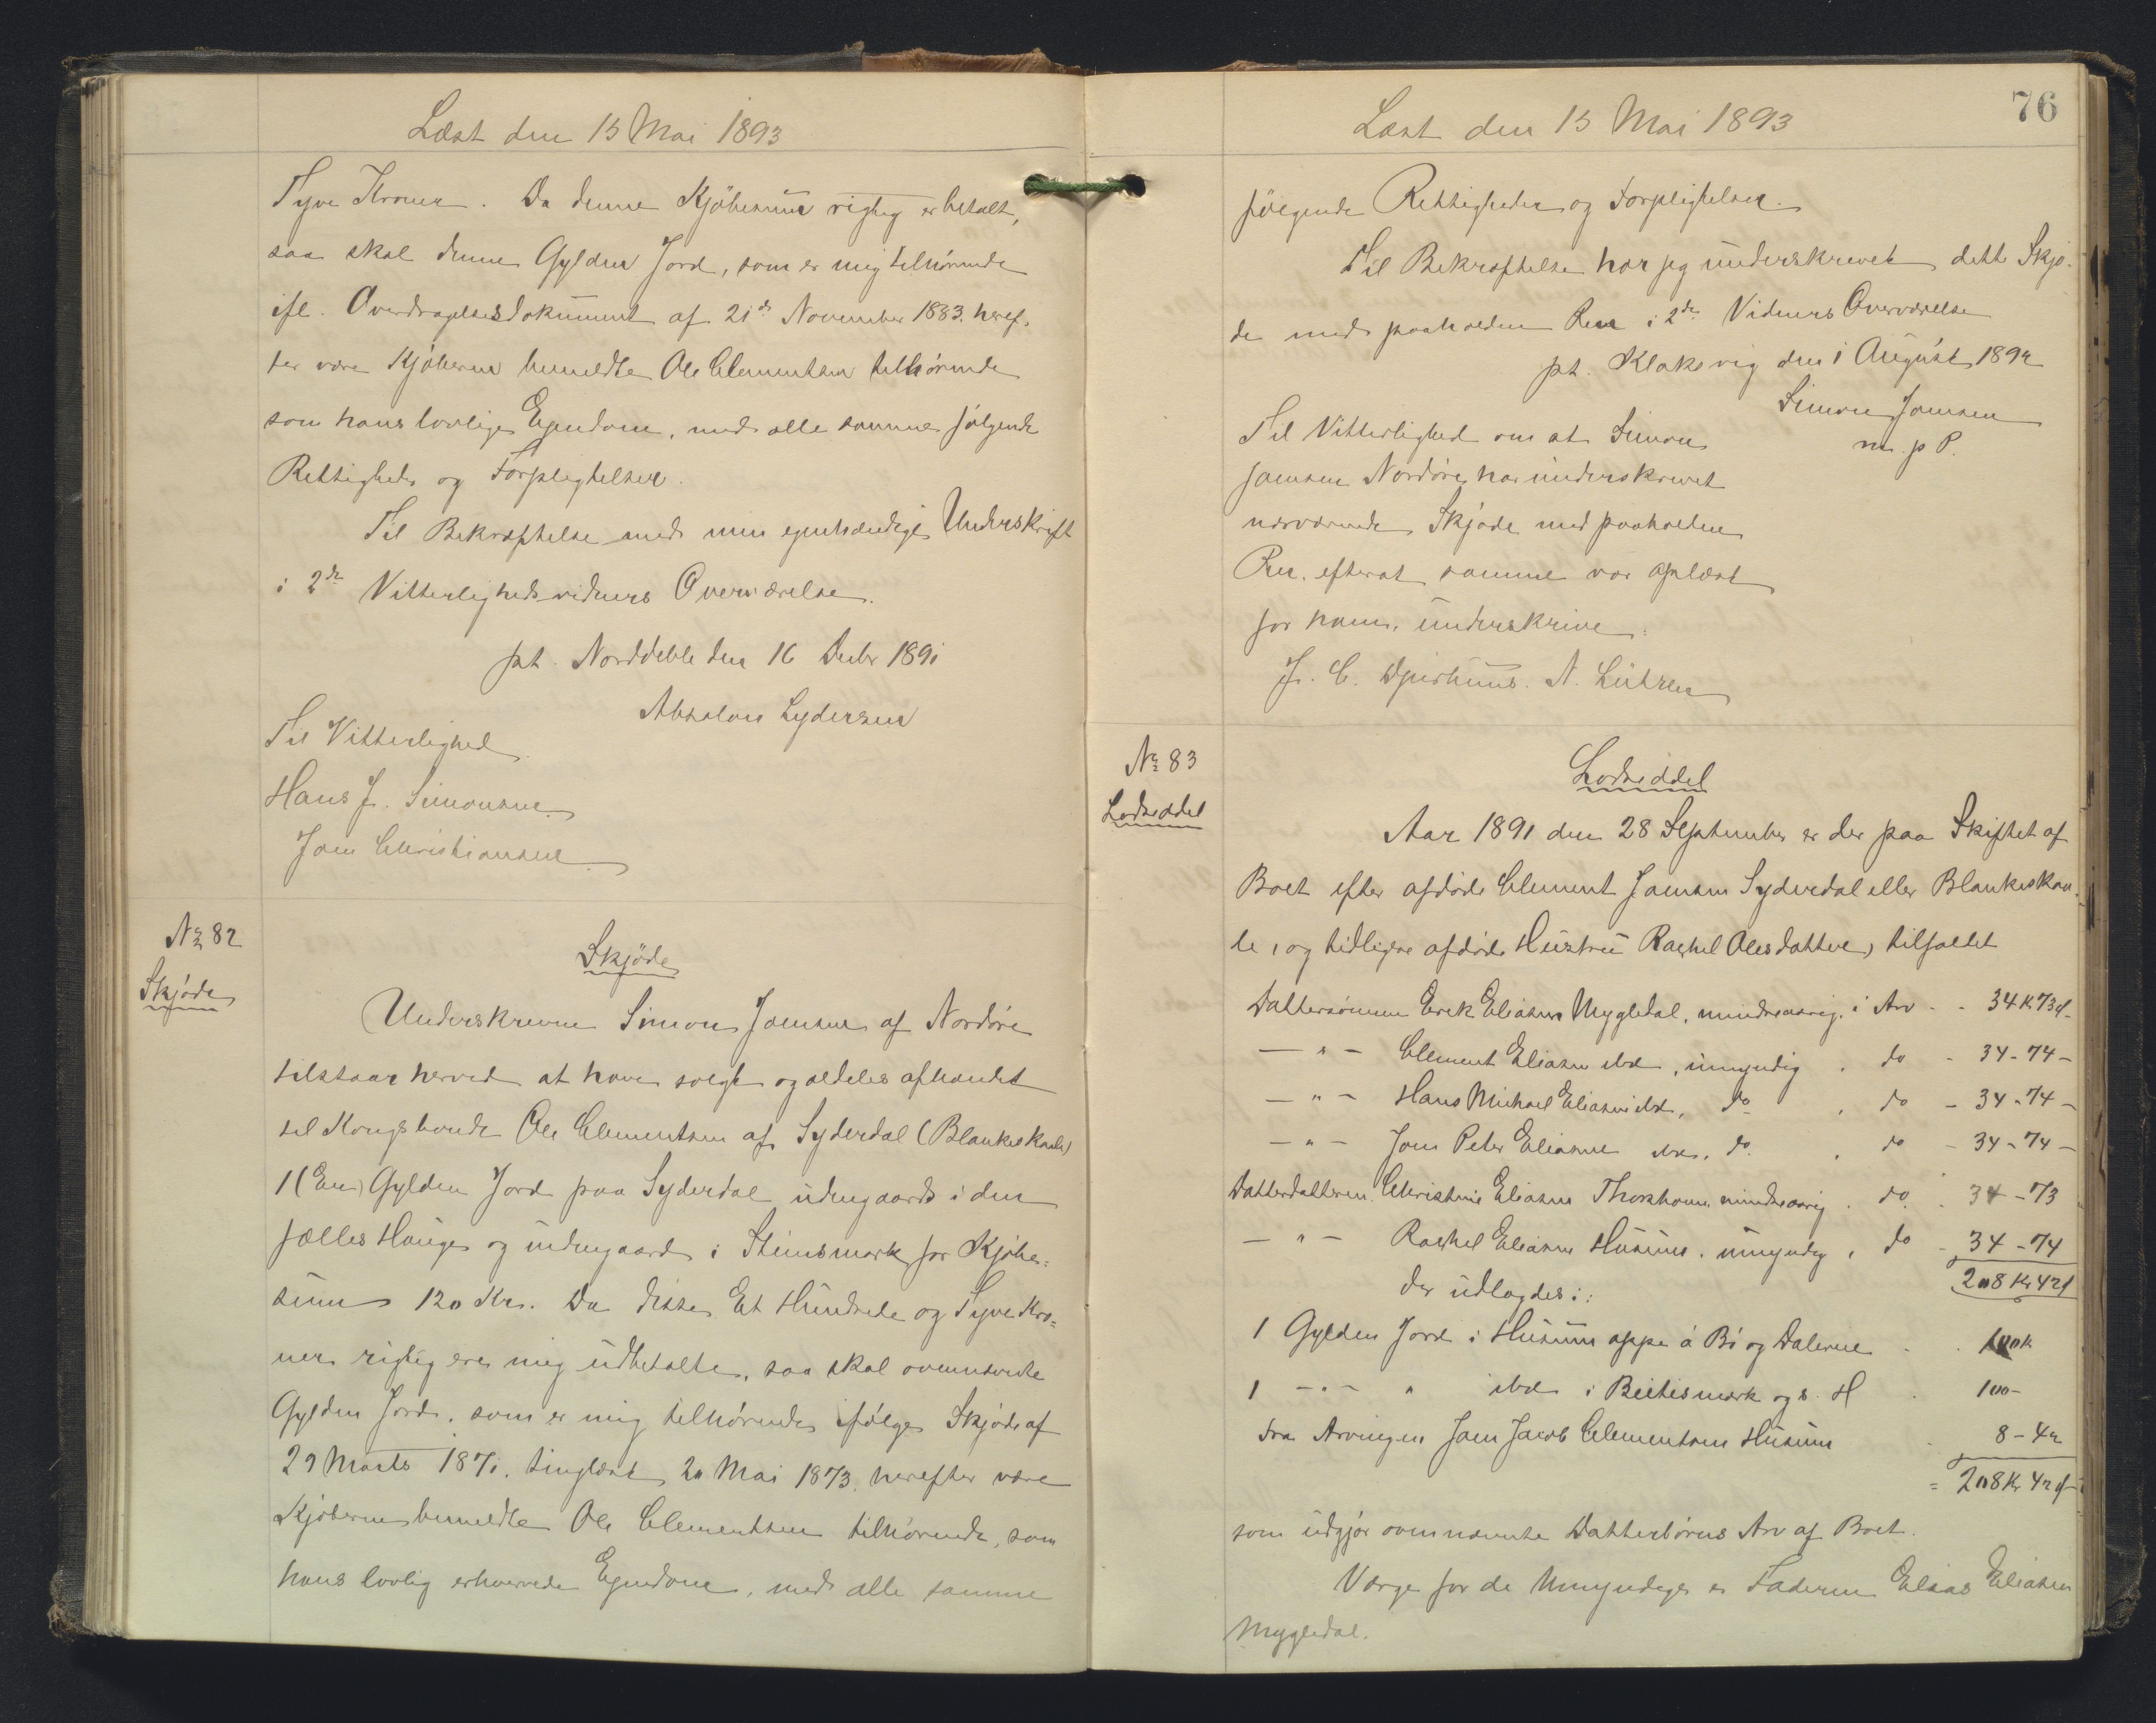 Læst den 15 Mai 1893
Tyve Kroner. Da denne Kjöbesum rigtig er betalt,
saa skal denne Gylden Jord, som er mig tilhörende
ifl. Overdragelsesdokument af 21de November 1883. heref-
ter være Kjöberen bemeldte Ole Clementsen tilhörende
som hans lovlige Ejendom, med alle samme fölgende
Rettigheder og Forpligtelser.
Til Bekræftelse med min egenhændige Underskrift
i 2de Vitterlighedsvidners Overværelse.
pt. Norddeble den 16 Decbr 1891
Absalon Lydersen
Til Vitterlighed
Hans J. Simonsen
Joen Christiansen
No 82
Skjöde
Skjöde
Underskrevne Simon Joensen af Nordöre
tilstaar herved at have solgt og aldeles afhændet
til Kongsbonde Ole Clementsen af Syderdal (Blankeskaale)
1 (Een) Gylden Jord paa Syderdal udengaards i den
fælles Hauge og indengaards i Steinsmark for Kjöbe=
sum 120 Kr. Da disse Et Hundrede og Tyve Kro=
ner rigtig ere mig udbetalte, saa skal ovennævnte
Gylden Jord, som er mig tilhörende ifölge Skjöde af
29 Marts 1871. tinglæst 20 Mai 1873, herefter være
Kjöberen bemeldte Ole Clementsen tilhörende, som
hans lovlig erhvervede Ejendom, med alle samme
76
Læst den 15 Mai 1893
fölgende Rettigheder og Forpligtelser.
Til Bekræftelse har jeg underskrevet dette Skjö-
de med paaholden Pen i 2de Vidners Overværelse
pt. Klaksvig den 1 August 1892
Simon Joensen
m. p P.
Til Vitterlighed om at Simon
Joensen Nordöre har underskrevet
nærværende Skjöde med paaholden
Pen, efterat samme var oplæst
for ham, underskrive:
J. C. Djurhuus. N. Lützen
No 83
Lodseddel
Lodseddel
Aar 1891 den 28 September er der paa Skiftet af
Boet efter afdöde Clement Joensen Syderdal eller Blankeskaa-
le, og tidligere afdöde Hustru Rachel Olesdatter, tilfaldet
Dattersönnen Erik Eliasen Mygledal, mindreaarig, i Arv - - 34 K 73 Ø-
— " — Clement Eliasen ibd, umyndig , do - 34 - 74 -
— " — Hans Michael Eliasen ibd, do , do - 34 - 74 -
— " — Joen Peter Eliasen ibd, do , do - 34 - 74 -
Datterdatteren Christine Eliasen Thorshavn, mindreaarig . do. . 34 - 73
— " — Rachel Eliasen Husum, umyndig , do - 34 - 74
208 Kr 42 Ø
der udlagdes i:
1 Gylden Jord i Husum oppe á Bö og Dalerne - . 100 K
1 — " — " ibd i Beitismark og s. H . 100 -
Fra Arvingen Joen Jacob Clementsen Husum . 8 - 42
= 208 Kr 42 Ø
som udgjör ovennævnte Datterbörns Arv af Boet.
Værge for de Umyndige er Faderen Elias Eliasen
Mygledal.